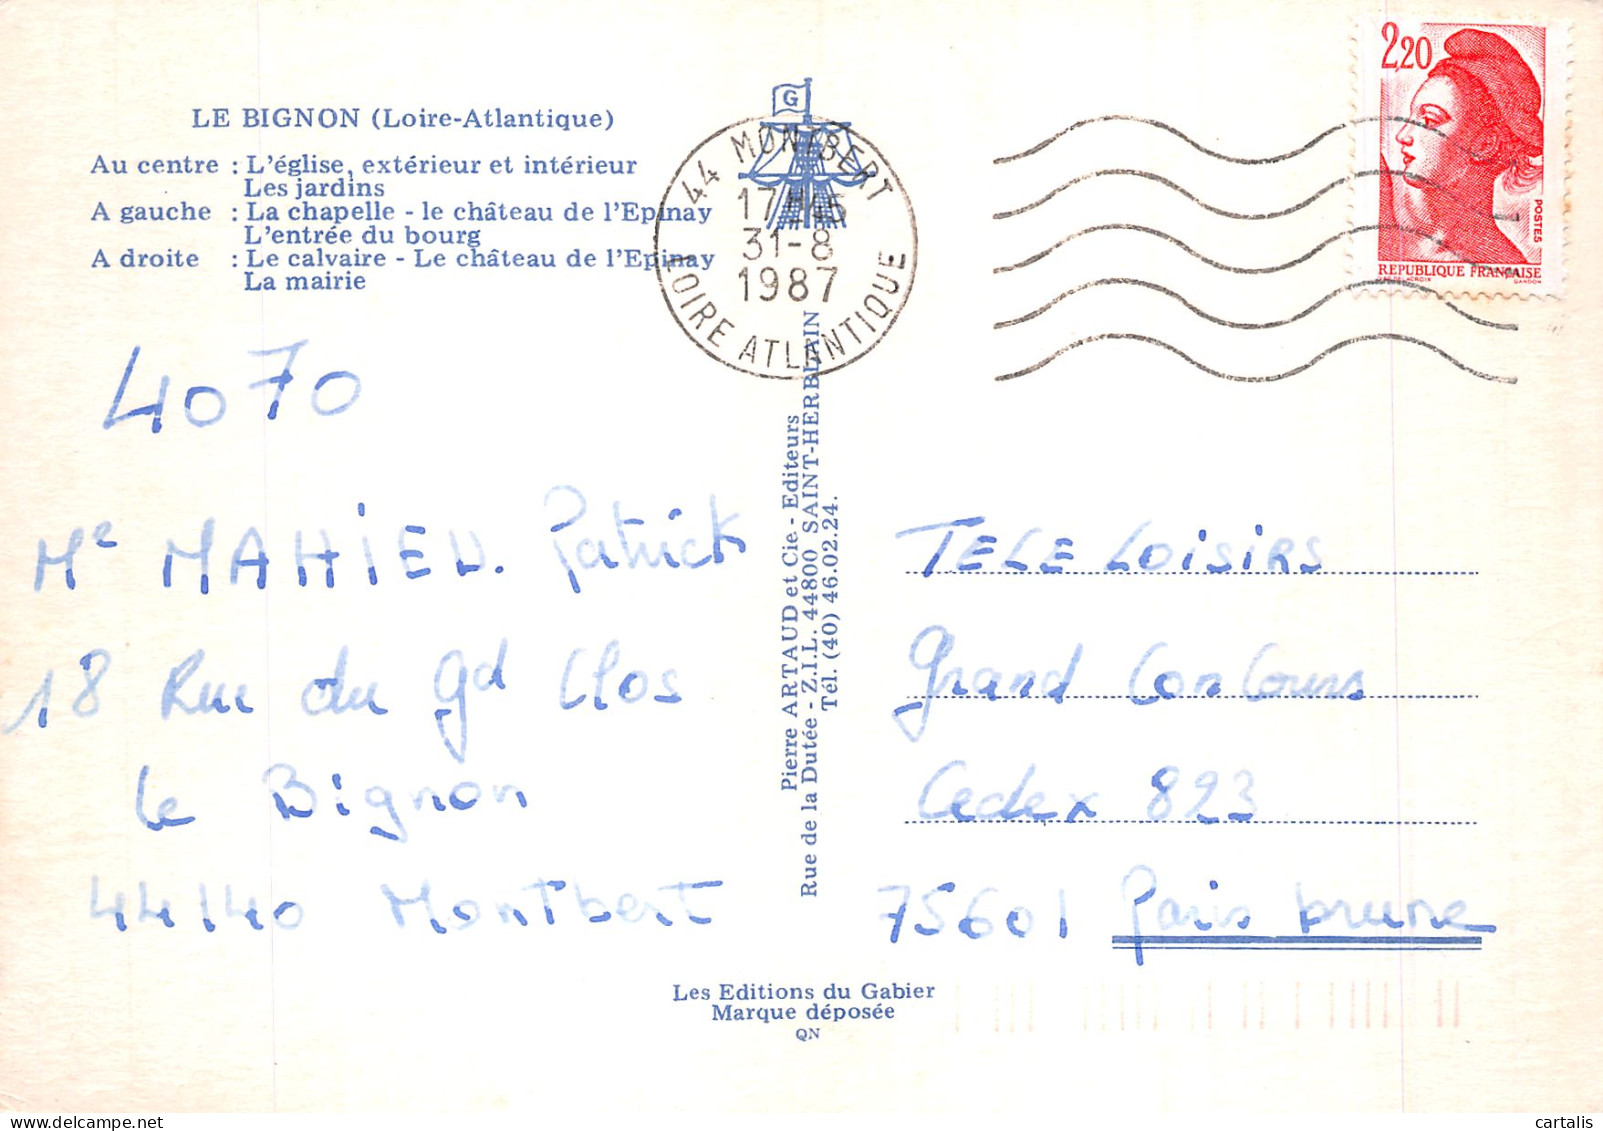 LE BIGNON (Loire-Atlantique)
Au centre : L'église, extérieur et intérieur
Les jardins
A gauche : La chapelle - le château de l'Epinay
L'entrée du bourg
A droite : Le calvaire - Le château de l'Epinay
La mairie
G
44 MONTBERT
17H15
31-8
1987
LOIRE ATLANTIQUE
2,20
POSTES
REPUBLIQUE FRANÇAISE
GANDON
4070
Mr MAHIEU. Patrick
18 Rue du gd Clos
le Bignon
44140 Montbert
Pierre ARTAUD et Cie - Editeurs
Rue de la Dutée - Z.I.L. 44800 SAINT-HERBLAIN
Tél. (40) 46.02.24.
TELE LOISIRS
grand Concours
Cedex 823
75601 Paris brune
Les Editions du Gabier
Marque déposée
QN
cartalis